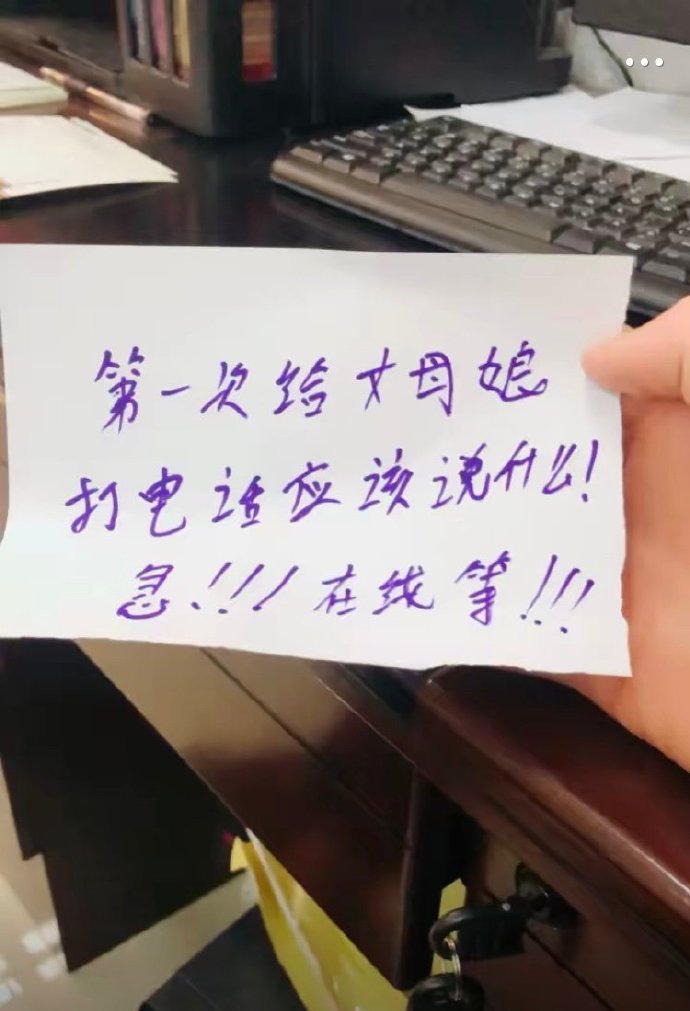 第一次给丈母娘
打电话应该说什么!
急!!!在线等!!!